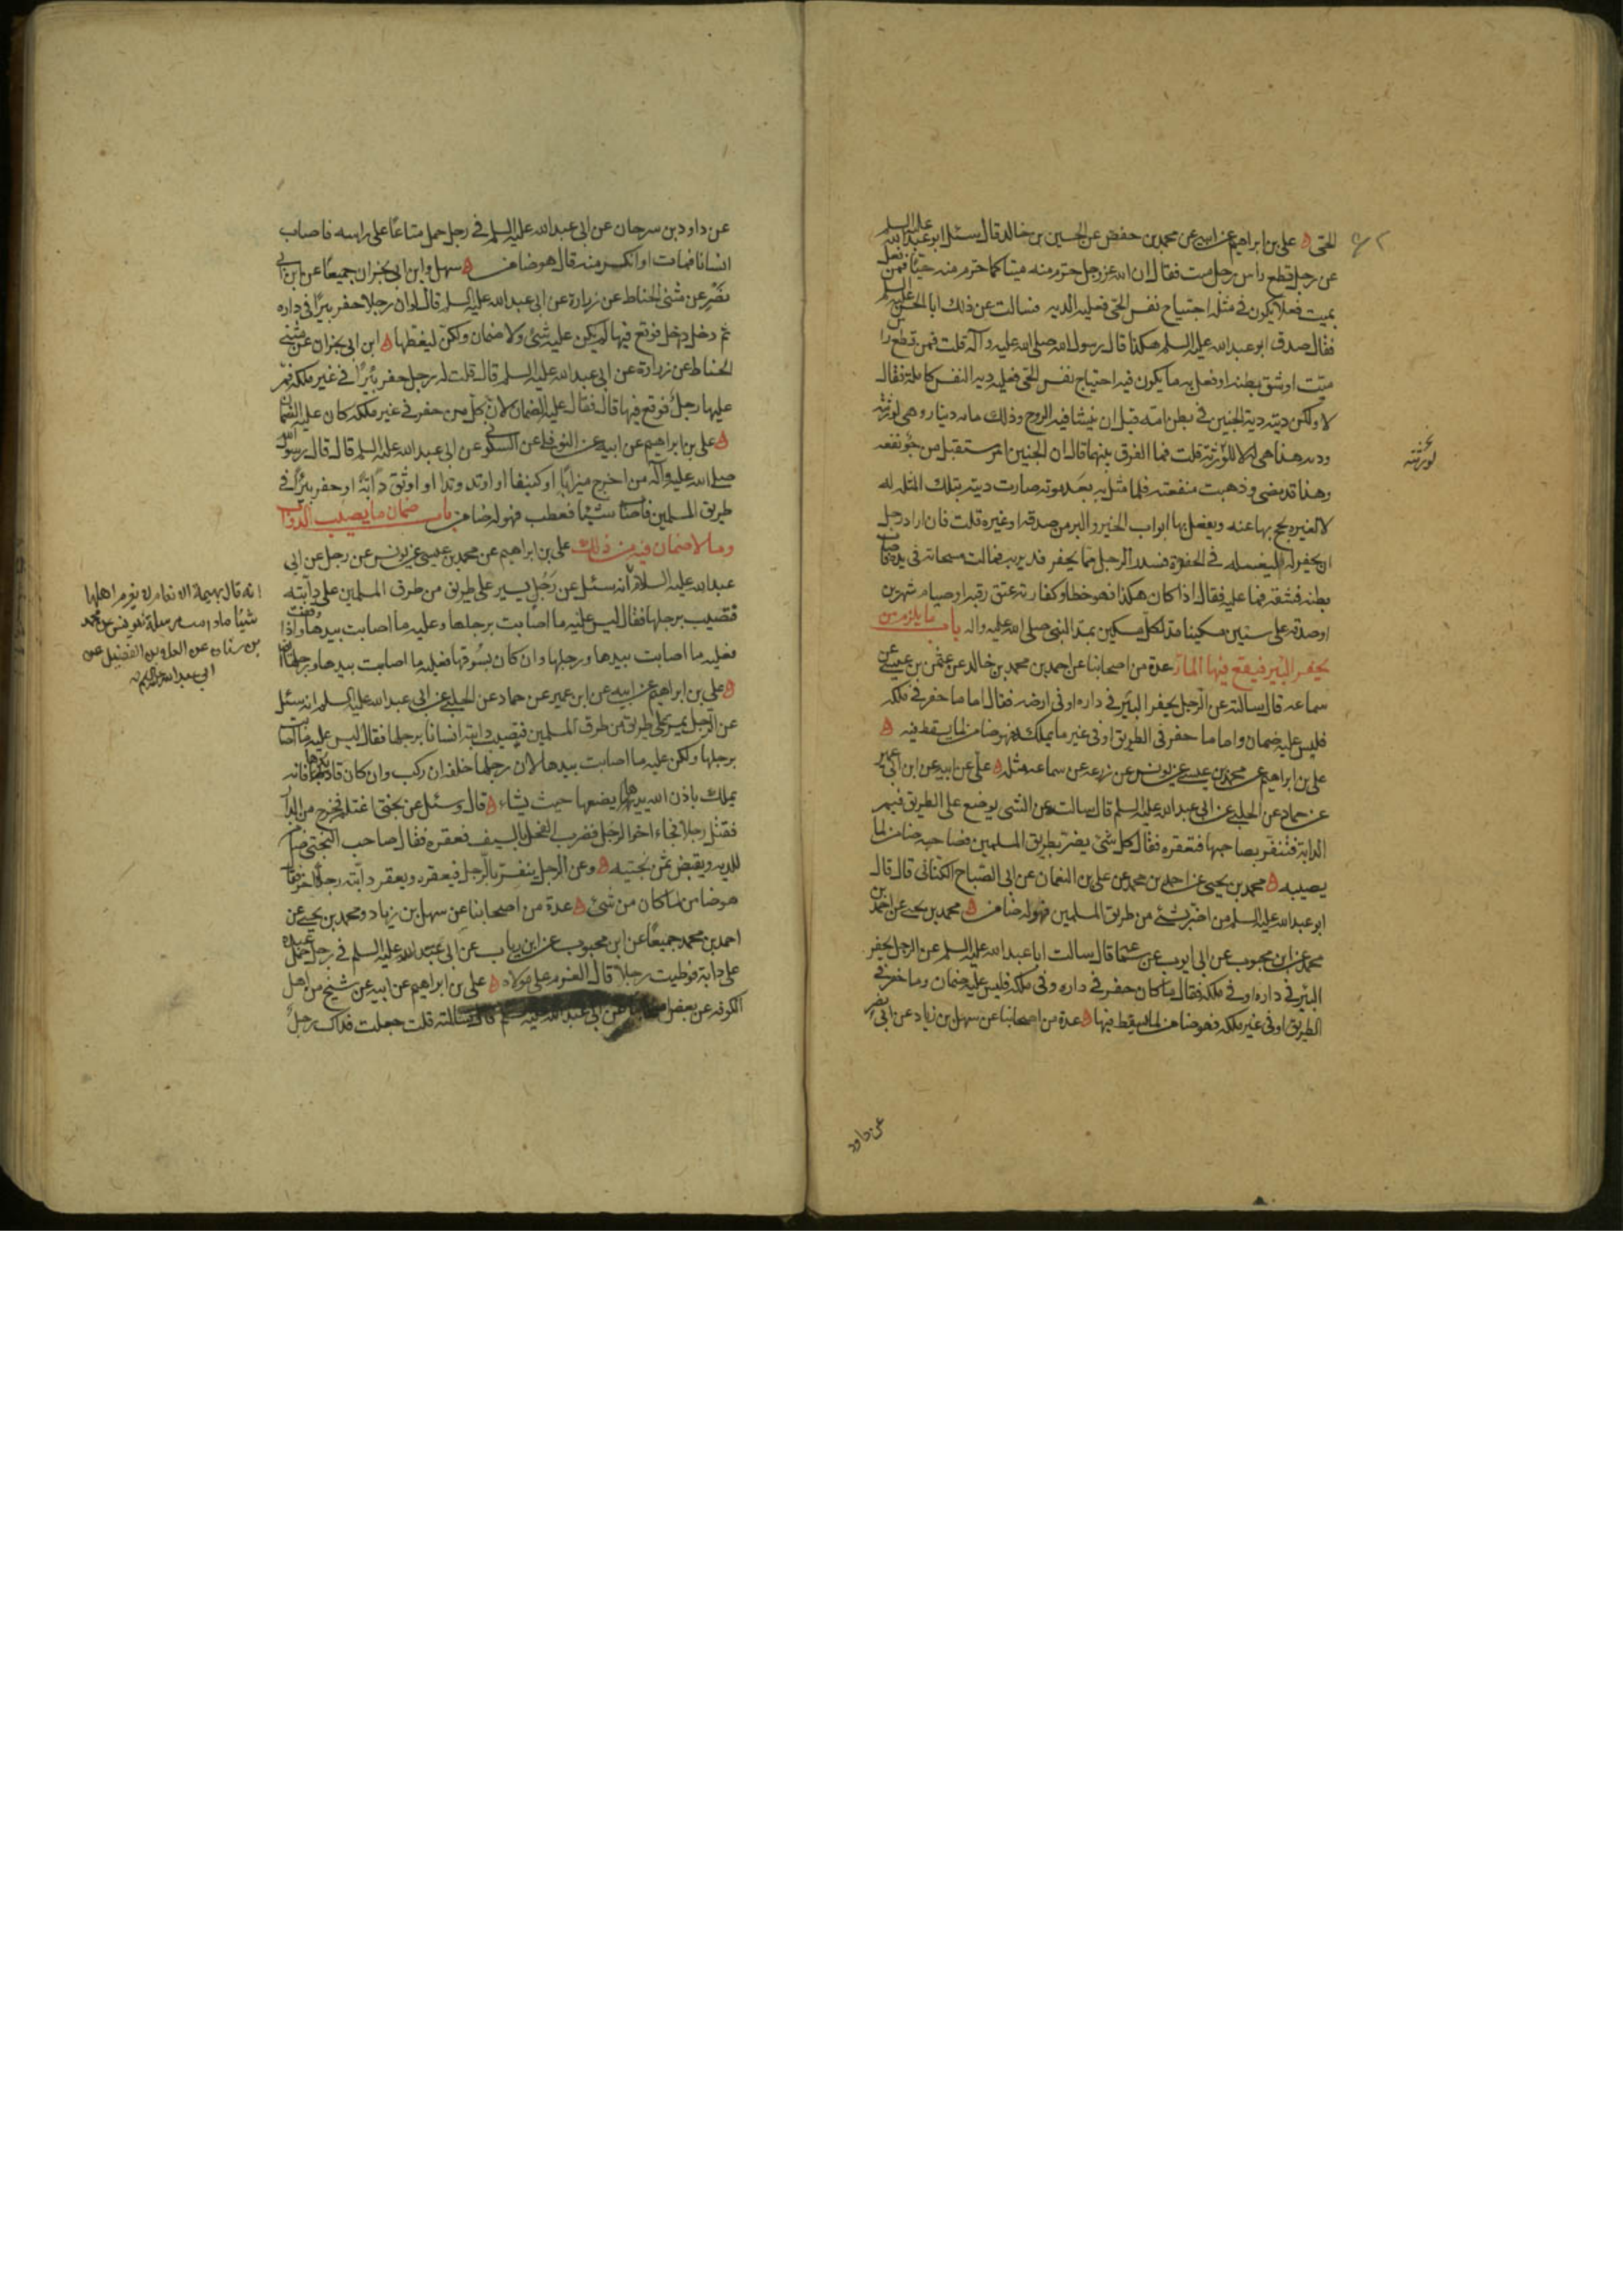 الحى علي بن ابراهيم عن ابيه عن محمد بن حفص عن الحسين بن خالد قال سئل ابو عبد الله عليه السلم
عن رجل قطع راس رجل ميت فقال ان الله عز وجل حرم منه ميتا كما حرم منه حيا فمن فعل
بميت فعلا يكون في مثله اجتياح نفس الحى فعليه الدية فسالت عن ذلك ابا الحسن عليه السلم
فقال صدق ابو عبد الله عليه السلم هكذا قال رسول الله صلى الله عليه وآله قلت فمن قطع راس
ميت او شق بطنه او فعل به ما يكون فيه اجتياح نفس الحى فعليه دية النفس كاملة فقال
لا ولكن ديته دية الجنين في بطن امه قبل ان ينشا فيه الروح وذلك مائة دينار وهي لورثته
ودية هذا هي له لا للورثة قلت فما الفرق بينهما قال ان الجنين امر مستقبل مرجو نفعه
وهذا قد مضى وذهبت منفعته فلما مثل به بعد موته صارت ديته بتلك المثلة له
لا لغيره يحج بها عنه ويفعل بها ابواب الخير والبر من صدقة او غيره قلت فان اراد رجل
ان يحفر له ليغسله في الحفرة فسدر الرجل مما يحفر فدير به فمالت مسحاته في يده فاصاب
بطنه فشقه فما عليه فقال اذا كان هكذا فهو خطا وكفارته عتق رقبة او صيام شهرين
او صدقة على ستين مسكينا مد لكل مسكين بمد النبي صلى الله عليه واله باب ما يلزم من
يحفر البئر فيقع فيها المار عدة من اصحابنا عن احمد بن محمد بن خالد عن عثمن بن عيسى عن
سماعة قال سالته عن الرجل يحفر البئر في داره او في ارضه فقال اما ما حفر في ملكه
فليس عليه ضمان واما ما حفر في الطريق او في غير ما يملك فهو ضامن لما يسقط فيه
علي بن ابراهيم عن محمد بن عيسى عن يونس عن زرعة عن سماعة مثله علي عن ابيه عن ابن ابي عمير
عن حماد عن الحلبي عن ابي عبد الله عليه السلم قال سالته عن الشي يوضع على الطريق فتمر
الدابة فتنفر بصاحبها فتعقره فقال كل شئ يضر بطريق المسلمين فصاحبه ضامن لما
يصيبه محمد بن يحيى عن احمد بن محمد عن علي بن النعمان عن ابي الصباح الكناني قال قال
ابو عبد الله عليه السلم من اضر بشئ من طريق المسلمين فهو له ضامن محمد بن يحيى عن احمد بن
محمد عن ابن محبوب عن ابي ايوب عن سماعة قال سالت ابا عبد الله عليه السلم عن الرجل يحفر
البئر في داره او في ملكه فقال ما كان حفر في داره وفي ملكه فليس عليه ضمان وما حفر في
الطريق او في غير ملكه فهو ضامن لما يسقط فيها عدة من اصحابنا عن سهل بن زياد عن ابن ابي نصر
لورثته
عن داود
عن داود بن سرحان عن ابي عبد الله عليه السلم في رجل حمل متاعا على راسه فاصاب
انسانا فمات او انكسر منه قال هو ضامن سهل وابن ابي نجران جميعا عن ابن ابي
نصر عن مثنى الحناط عن زرارة عن ابي عبد الله عليه السلم قال لو ان رجلا حفر بيرا في داره
ثم دخل رجل فوقع فيها لم يكن عليه شئ ولا ضمان ولكن ليغطها ابن ابي نجران عن مثنى
الحناط عن زرارة عن ابي عبد الله عليه السلم قال قلت له رجل حفر بئرا في غير ملكه فمر
عليها رجل فوقع فيها قال فقال عليه الضمان لان كل من حفر في غير ملكه كان عليه الضمان
علي بن ابراهيم عن ابيه عن النوفلي عن السكوني عن ابي عبد الله عليه السلم قال قال رسول الله
صلى الله عليه وآله من اخرج ميزابا او كنيفا او اوتد وتدا او اوثق دابة او حفر بئرا في
طريق المسلمين فاصاب شيئا فعطب فهو له ضامن باب ضمان ما يصيب الدواب
وما لا ضمان فيه من ذلك علي بن ابراهيم عن محمد بن عيسى عن يونس عن رجل عن ابي
عبد الله عليه السلام انه سئل عن رجل يسير على طريق من طرق المسلمين على دابته
فتصيب برجلها فقال ليس عليه ما اصابت برجلها وعليه ما اصابت بيدها واذا وقفت
فعليه ما اصابت بيدها ورجلها وان كان يسوقها فعليه ما اصابت بيدها ورجلها ايضا
علي بن ابراهيم عن ابيه عن ابن ابي عمير عن حماد عن الحلبي عن ابي عبد الله عليه السلم انه سئل
عن الرجل يمر على طريق من طرق المسلمين فتصيب دابته انسانا برجلها فقال ليس عليه ما اصابت
برجلها ولكن عليه ما اصابت بيدها لان رجلها خلفه ان ركب وان كان قاد بها فانه
يملك باذن الله يدها يضعها حيث يشاء قال وسئل عن بختي اغتلم فخرج من الدار
فقتل رجلا فجاء اخو الرجل فضرب الفحل بالسيف فعقره فقال صاحب البختي ضامن
للدية ويقبض ثمن بختيه وعن الرجل ينفر بالرجل فيعقره ويعقر دابته رجلا اخر فقال
هو ضامن لما كان من شئ عدة من اصحابنا عن سهل بن زياد ومحمد بن يحيى عن
احمد بن محمد جميعا عن ابن محبوب عن ابن رياب عن ابي عبد الله عليه السلم في رجل حمل عبده
على دابة فوطيت رجلا قال الغرم على مولاه علي بن ابراهيم عن ابيه عن شيخ من اهل
الكوفة عن بعض اصحابنا عن ابي عبد الله عليه السلم قال سالته قلت جعلت فداك رجل
انه قال بهيمة الانعام لا يغرم اهلها
شيئا ما دامت مرسلة يونس عن محمد
بن سنان عن العلاء بن الفضيل عن
ابي عبد الله عليه السلم